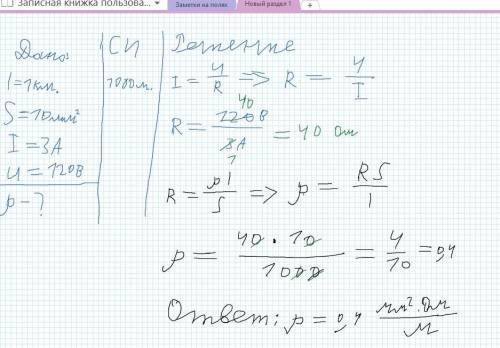 Записная книжка пользова...
Заметки на полях
Новый раздел 1
Дано:
l=1км.
S=10мм²
I=3А
U=120В
ρ-?
СИ
1000м.
Решение
I = U/R => R = U/I
R = 120В/3А = 40 Ом
40
1
R = ρl/S => ρ = RS/l
ρ = 40·10/1000 = 4/10 = 0,4
Ответ: ρ = 0,4 мм²·Ом/м